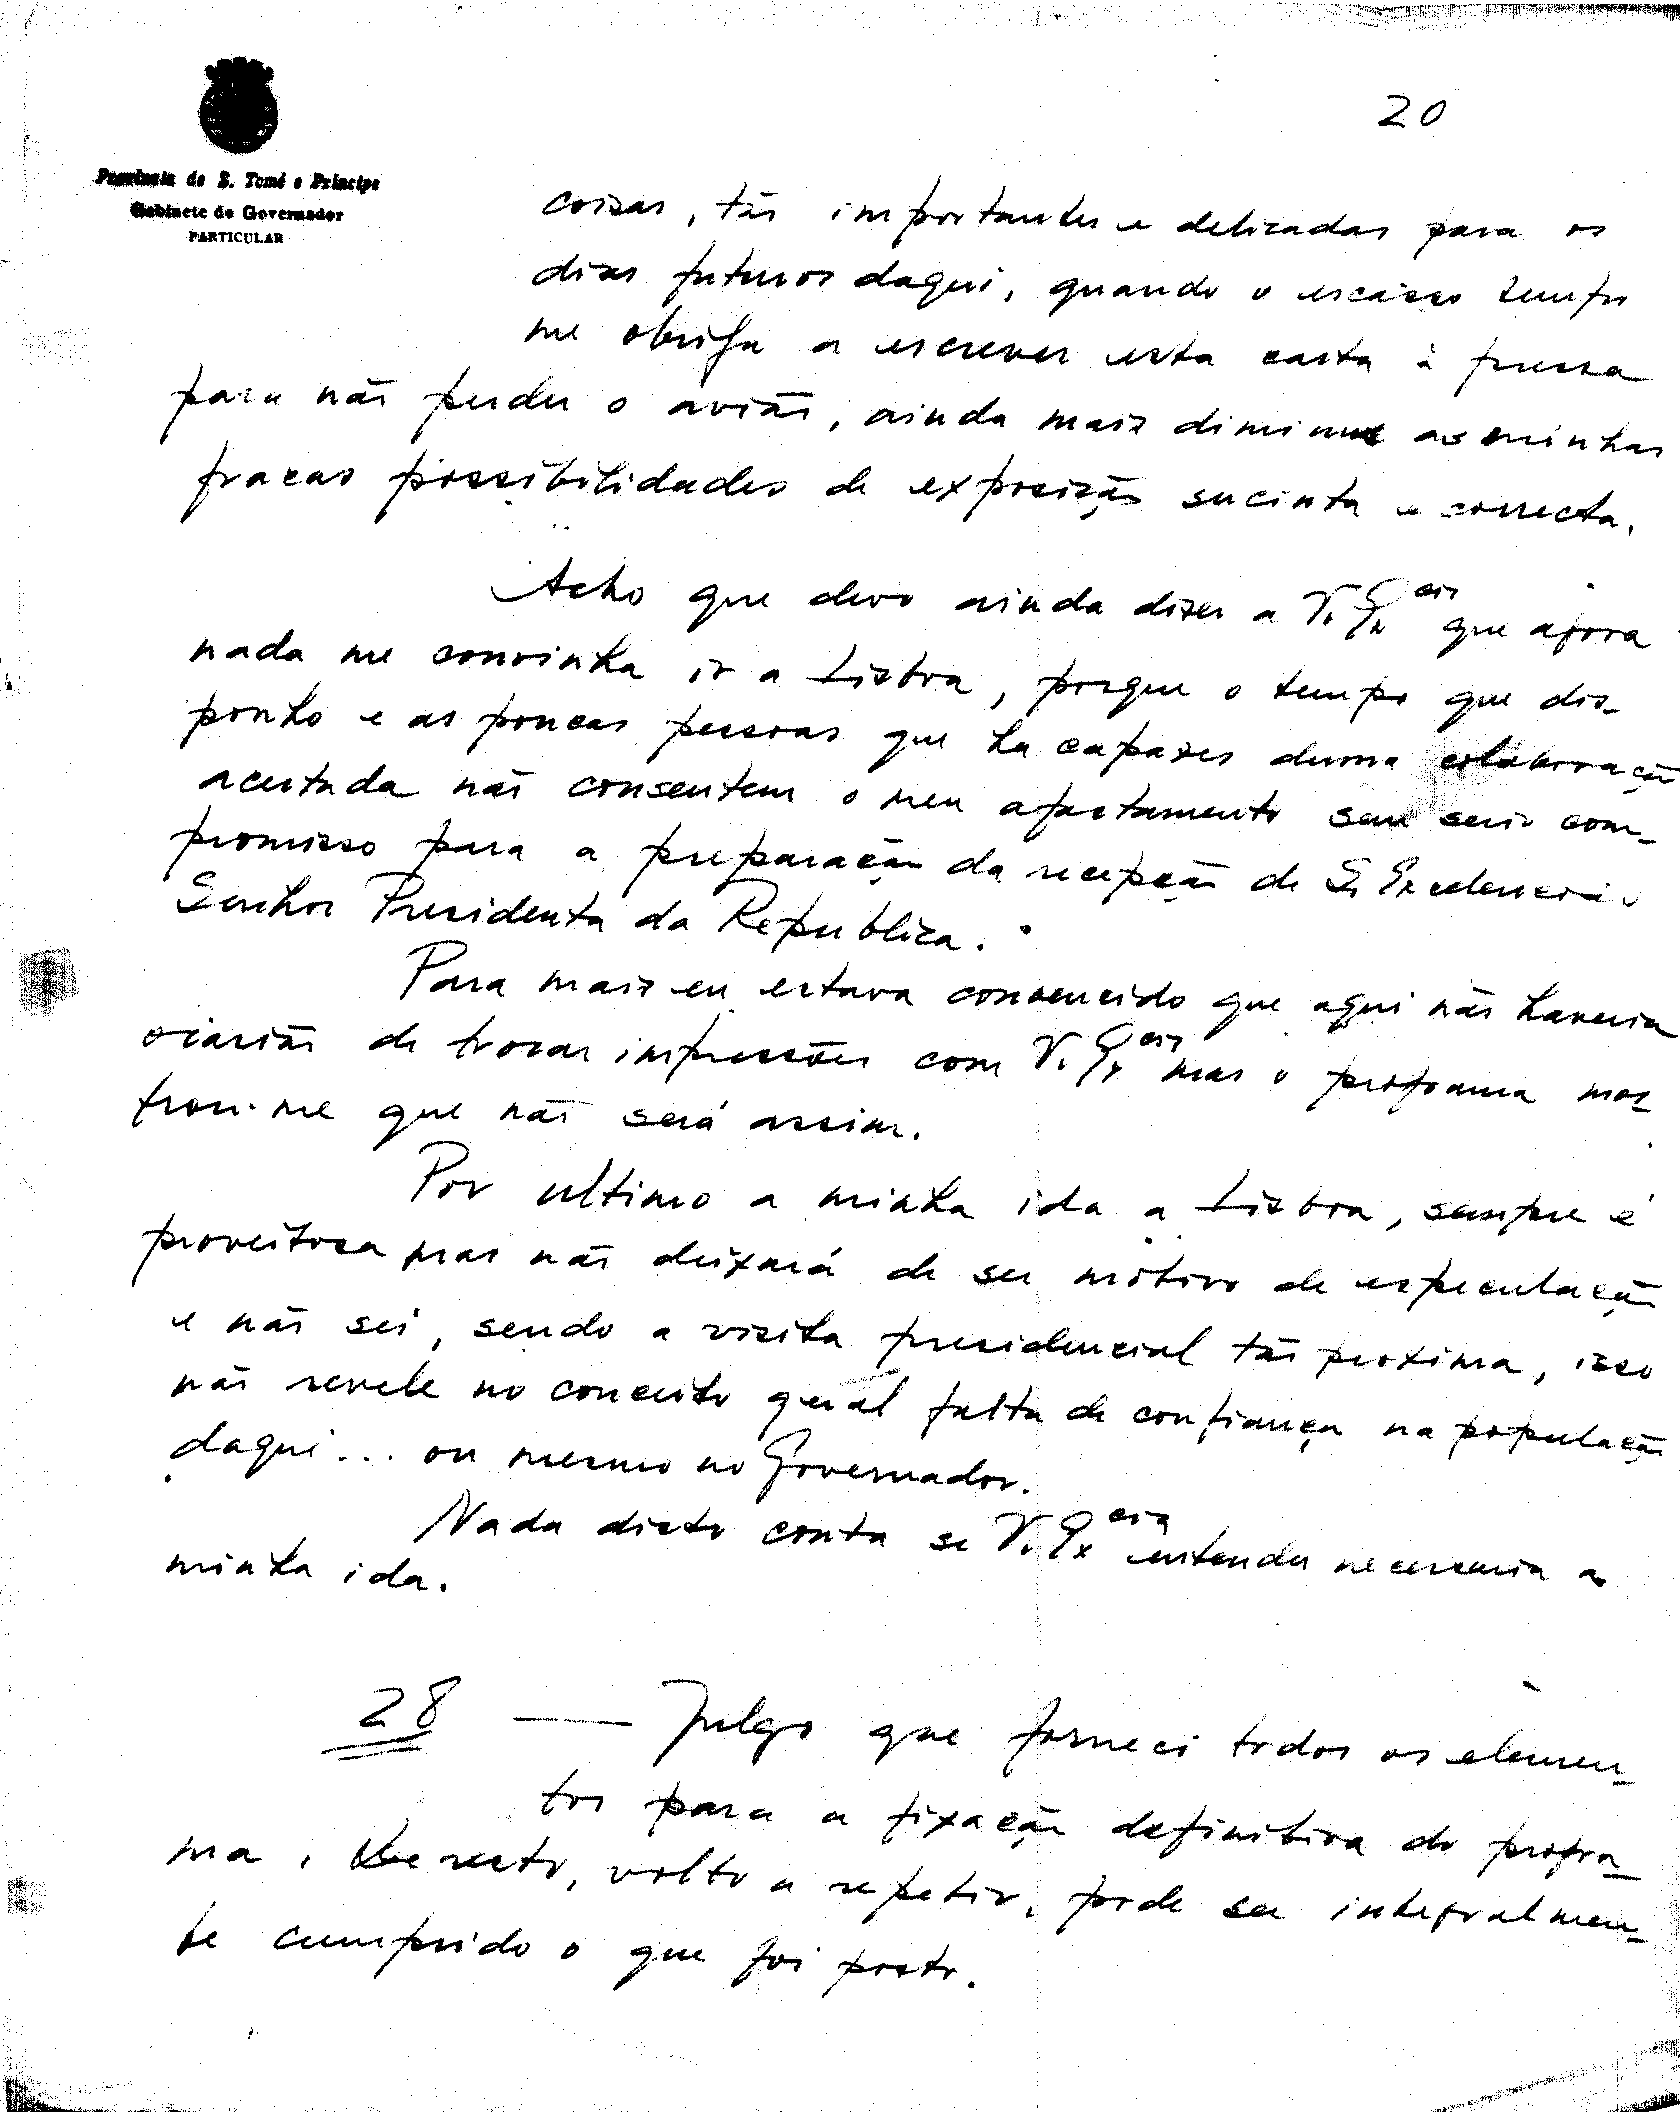 20
Província de S. Tomé e Príncipe
Gabinete do Governador
PARTICULAR
coisas, tão importantes e delicadas para os
dias futuros daqui, quando o escásso tempo
me obriga a escrever esta carta à pressa
para não perder o avião, ainda mais diminue as minhas
fracas possibilidades de exposição sucinta e correcta.
Acho que devo ainda dizer a V. Ex.cia que agora
nada me convinha ir a Lisboa, porque o tempo que dis-
ponho e as poucas pessoas que ha capazes duma colaboração
acertada não consentem o meu afastamento sem serio com-
promisso para a preparação da recepção de S. Excelencia o
Senhor Presidente da Republica.
Para mais eu estava convencido que aqui não haveria
ocasião de trocar impressões com V. Ex.cia mas o programa mos-
trou-me que não será assim.
Por ultimo a minha ida a Lisboa, sempre é
proveitosa mas não deixará de ser motivo de especulação
e não sei, sendo a visita presidencial tão proxima, isso
não revele no conceito geral falta de confiança na população
daqui... ou mesmo no Governador.
Nada disto conta se V. Ex.cia entender necessaria a
minha ida.
28 — Julgo que forneci todos os elemen-
tos para a fixação definitiva do progra-
ma. De resto, volto a repetir, pode ser integralmen-
te cumprido o que foi posto.